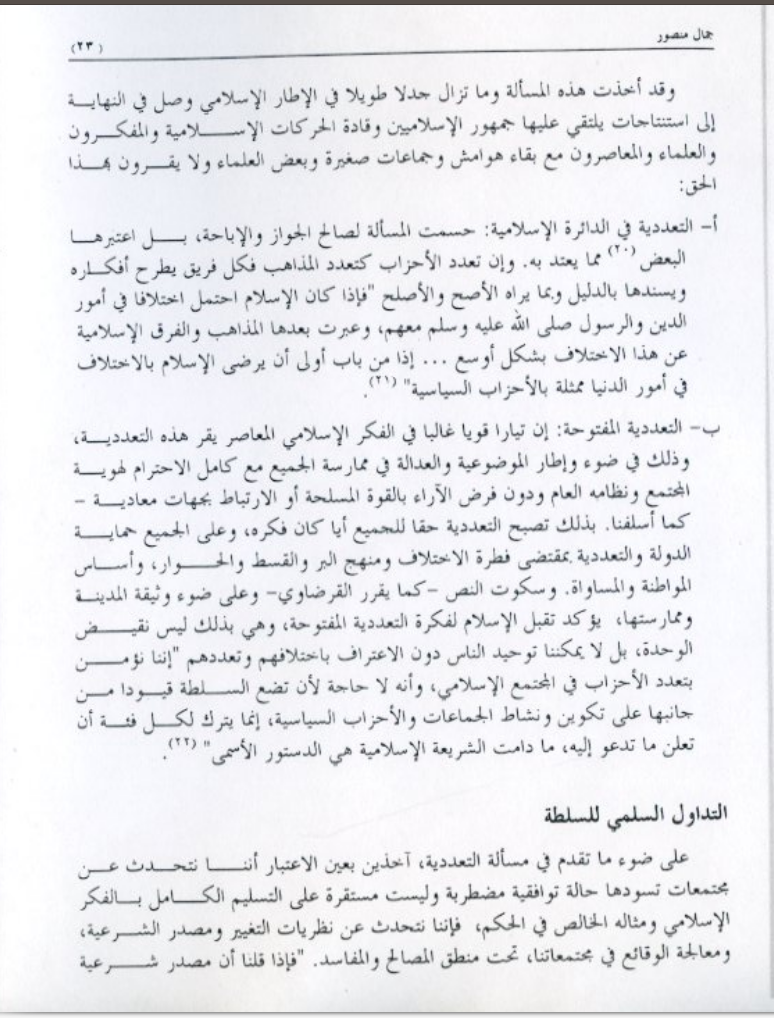 جمال منصور
(٢٣)
وقد أخذت هذه المسألة وما تزال جدلا طويلا في الإطار الإسلامي وصل في النهاية
إلى استنتاجات يلتقي عليها جمهور الإسلاميين وقادة الحركات الإسلامية والمفكرون
والعلماء والمعاصرون مع بقاء هوامش وجماعات صغيرة وبعض العلماء ولا يقرون بهذا
الحق:
أ- التعددية في الدائرة الإسلامية: حسمت المسألة لصالح الجواز والإباحة، بل اعتبرها
البعض (٢٠) مما يعتد به. وإن تعدد الأحزاب كتعدد المذاهب فكل فريق يطرح أفكاره
ويسندها بالدليل وبما يراه الأصح والأصلح "فإذا كان الإسلام احتمل اختلافا في أمور
الدين والرسول صلى الله عليه وسلم معهم، وعبرت بعدها المذاهب والفرق الإسلامية
عن هذا الاختلاف بشكل أوسع ... إذا من باب أولى أن يرضى الإسلام بالاختلاف
في أمور الدنيا ممثلة بالأحزاب السياسية" (٢١).
ب- التعددية المفتوحة: إن تيارا قويا غالبا في الفكر الإسلامي المعاصر يقر هذه التعددية،
وذلك في ضوء وإطار الموضوعية والعدالة في ممارسة الجميع مع كامل الاحترام لهوية
المجتمع ونظامه العام ودون فرض الآراء بالقوة المسلحة أو الارتباط بجهات معادية -
كما أسلفنا. بذلك تصبح التعددية حقا للجميع أيا كان فكره، وعلى الجميع حماية
الدولة والتعددية بمقتضى فطرة الاختلاف ومنهج البر والقسط والحوار، وأساس
المواطنة والمساواة. وسكوت النص -كما يقرر القرضاوي- وعلى ضوء وثيقة المدينة
وممارستها، يؤكد تقبل الإسلام لفكرة التعددية المفتوحة، وهي بذلك ليس نقيض
الوحدة، بل لا يمكننا توحيد الناس دون الاعتراف باختلافهم وتعددهم "إننا نؤمن
بتعدد الأحزاب في المجتمع الإسلامي، وأنه لا حاجة لأن تضع السلطة قيودا من
جانبها على تكوين ونشاط الجماعات والأحزاب السياسية، إنما يترك لكل فئة أن
تعلن ما تدعو إليه، ما دامت الشريعة الإسلامية هي الدستور الأسمى" (٢٢).
التداول السلمي للسلطة
على ضوء ما تقدم في مسألة التعددية، آخذين بعين الاعتبار أننا نتحدث عن
مجتمعات تسودها حالة توافقية مضطربة وليست مستقرة على التسليم الكامل بالفكر
الإسلامي ومثاله الخالص في الحكم، فإننا نتحدث عن نظريات التغيير ومصدر الشرعية،
ومعالجة الوقائع في مجتمعاتنا، تحت منطق المصالح والمفاسد. "فإذا قلنا أن مصدر شرعية